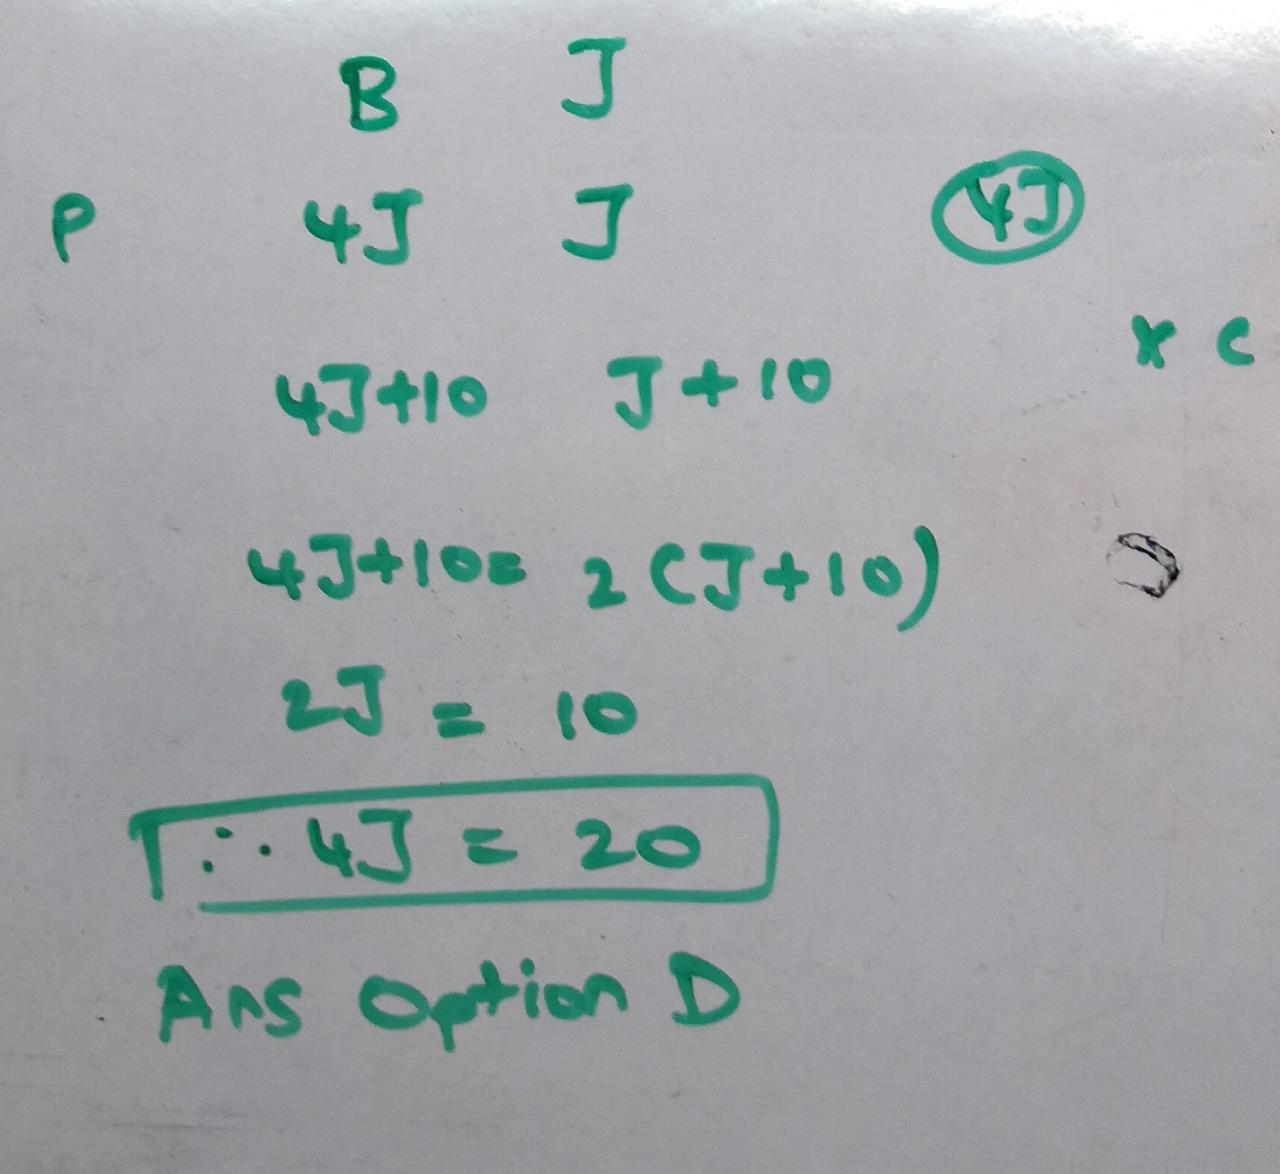 B J
P 4J J 4J
x c
4J+10 J+10
4J+10= 2(J+10)
2J = 10
∴ 4J = 20
Ans Option D